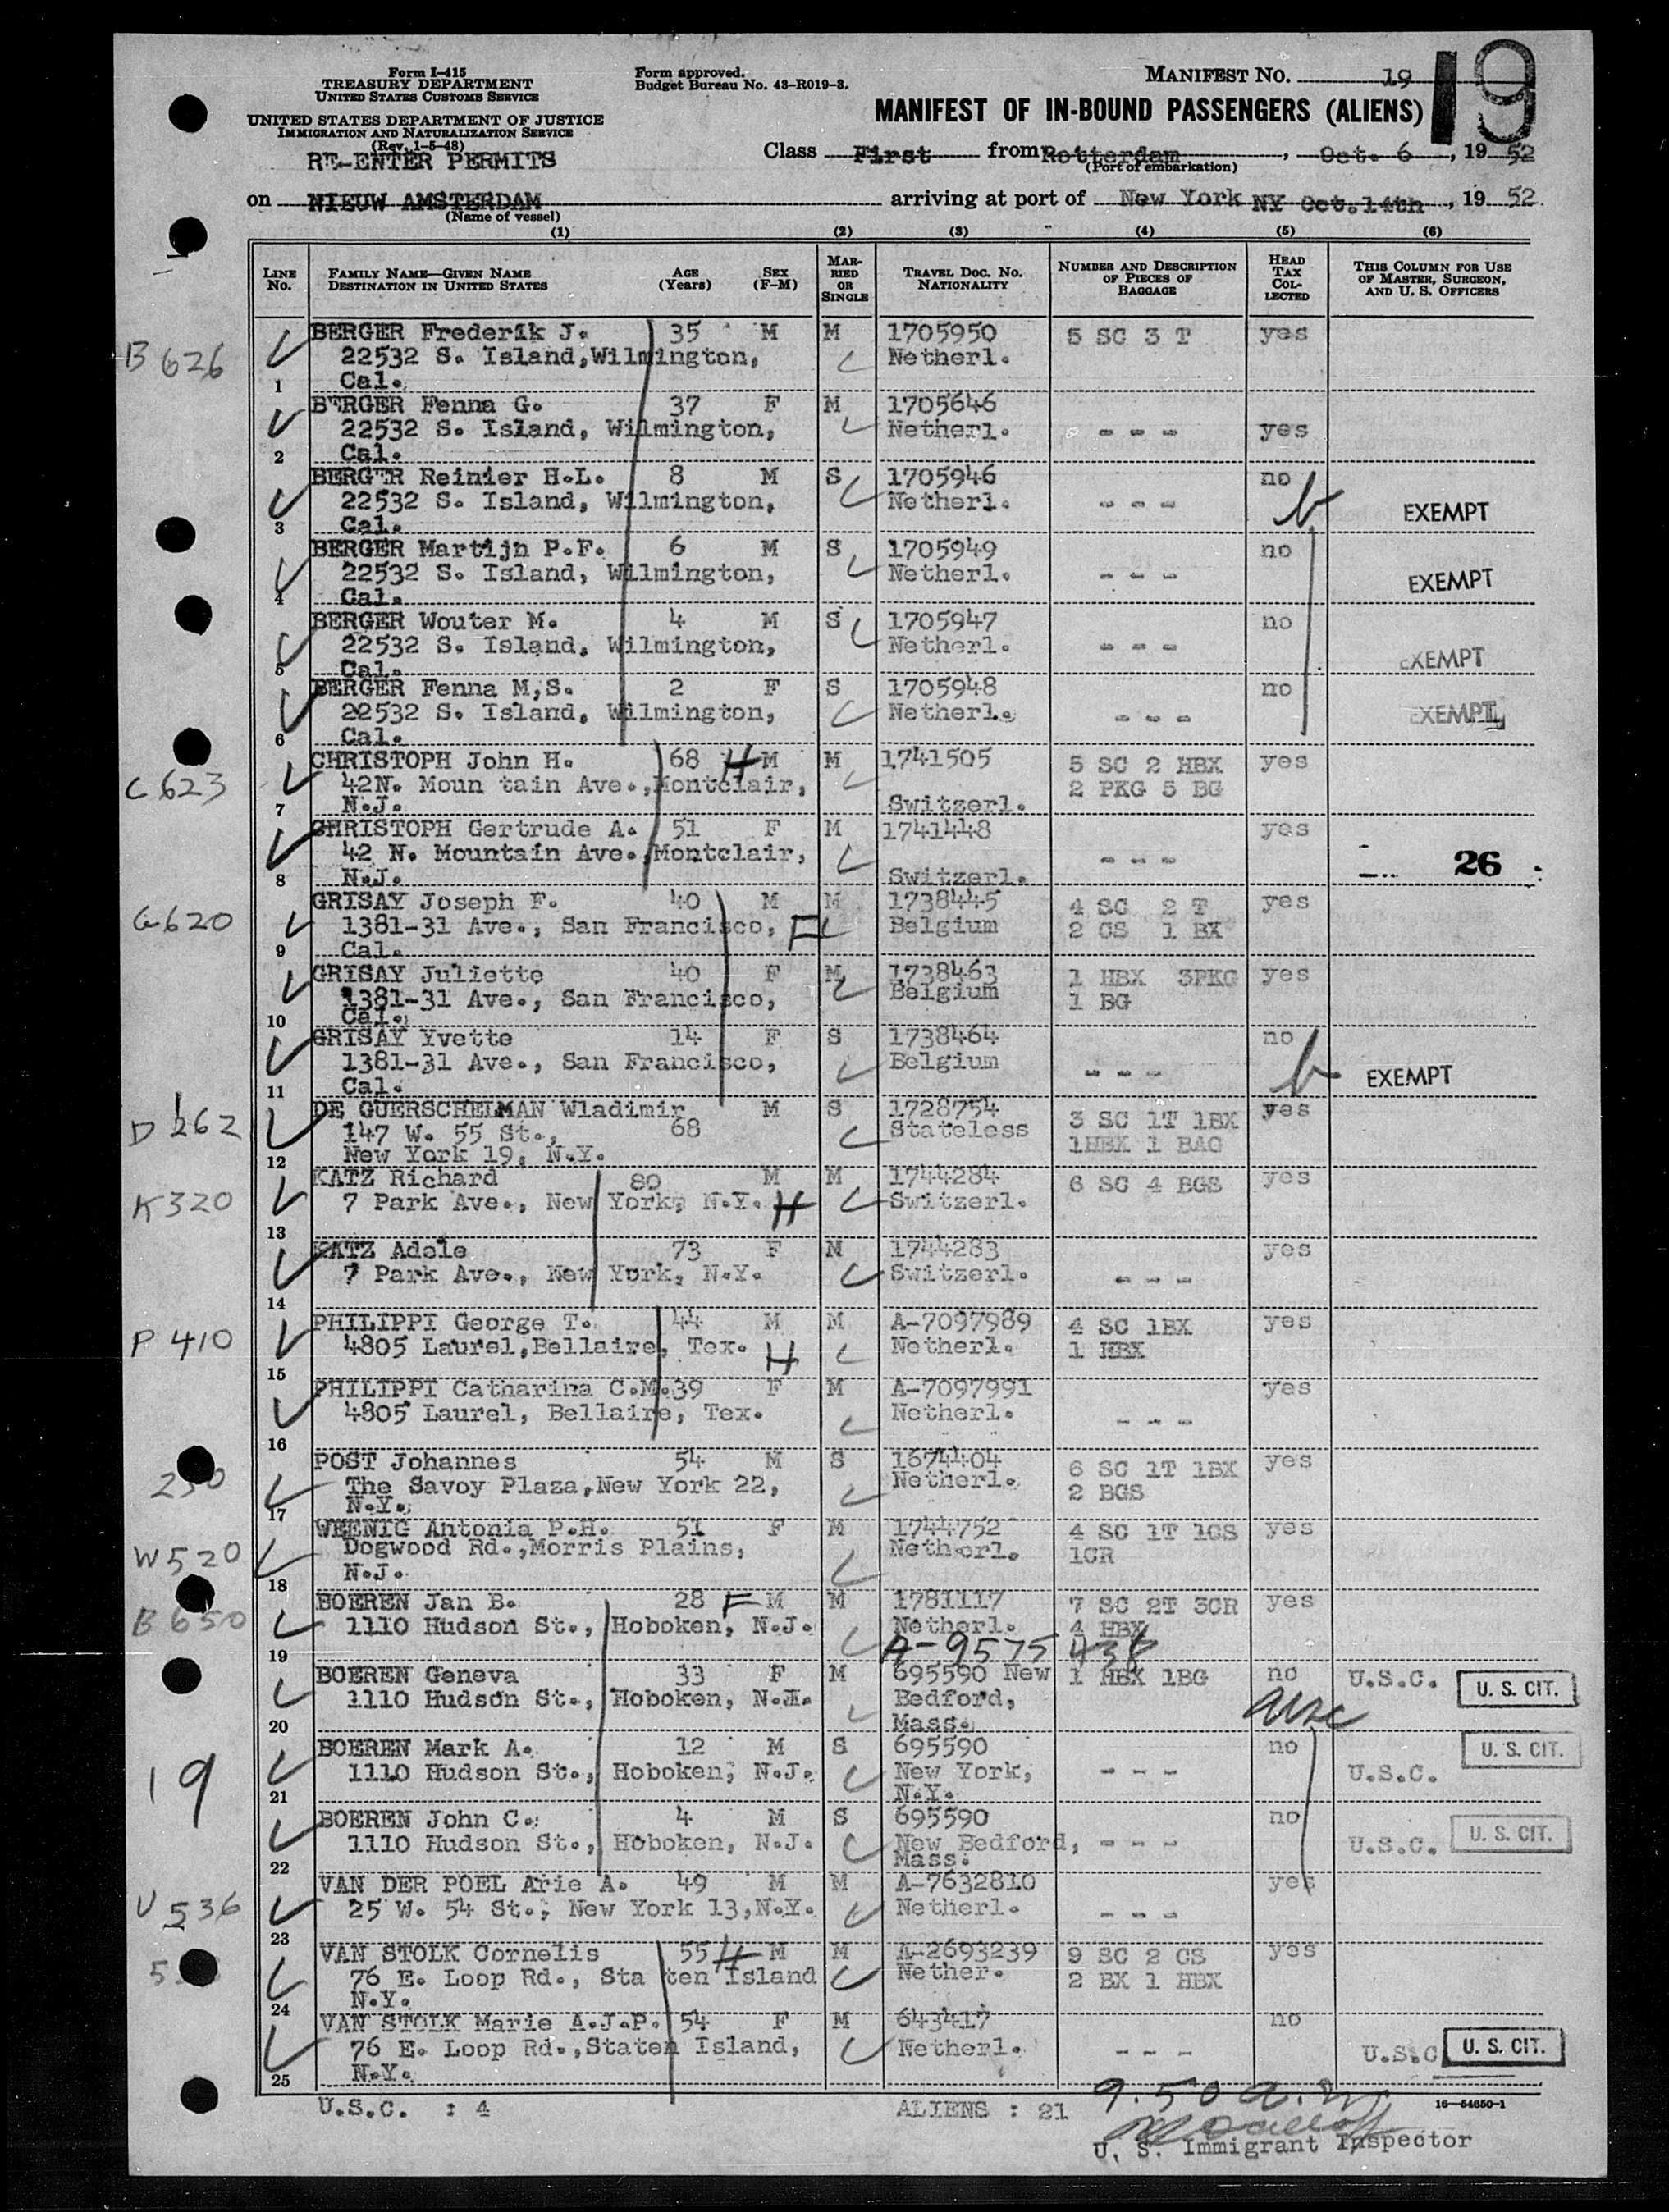 Form I-415
TREASURY DEPARTMENT
UNITED STATES CUSTOMS SERVICE
UNITED STATES DEPARTMENT OF JUSTICE
IMMIGRATION AND NATURALIZATION SERVICE
(Rev. 1-5-48)
RE-ENTER PERMITS
Form approved.
Budget Bureau No. 43-R019-3.
MANIFEST NO. 19
19
MANIFEST OF IN-BOUND PASSENGERS (ALIENS)
Class First from Rotterdam, Oct. 6, 1952
(Port of embarkation)
on NIEUW AMSTERDAM arriving at port of New York NY Oct.14th, 1952
(Name of vessel)
(1) (2) (3) (4) (5) (6)
LINE NO. FAMILY NAME—GIVEN NAME DESTINATION IN UNITED STATES AGE (YEARS) SEX (F-M) MARRIED OR SINGLE TRAVEL DOC. NO. NATIONALITY NUMBER AND DESCRIPTION OF PIECES OF BAGGAGE HEAD TAX COLLECTED THIS COLUMN FOR USE OF MASTER, SURGEON, AND U. S. OFFICERS
BERGER Frederik J. 35 M M 1705950 5 SC 3 T yes
B 626 22532 S. Island,Wilmington, Netherl.
1 Cal.
BERGER Fenna G. 37 F M 1705646
22532 S. Island, Wilmington, Netherl. - - - yes
2 Cal.
BERGER Reinier H.L. 8 M S 1705946 no
22532 S. Island, Wilmington, Netherl. - - - EXEMPT
3 Cal.
BERGER Martijn P.F. 6 M S 1705949 no
22532 S. Island, Wilmington, Netherl. - - - EXEMPT
4 Cal.
BERGER Wouter M. 4 M S 1705947 no
22532 S. Island, Wilmington, Netherl. - - - EXEMPT
5 Cal.
BERGER Fenna M,S. 2 F S 1705948 no
22532 S. Island, Wilmington, Netherl. - - - EXEMPT
6 Cal.
CHRISTOPH John H. 68 H M M 1741505 5 SC 2 HBX yes
C 623 42N. Moun tain Ave.,Montclair, 2 PKG 5 BG
7 N.J. Switzerl.
CHRISTOPH Gertrude A. 51 F M 1741448 yes
42 N. Mountain Ave.,Montclair, - - - 26
8 N.J. Switzerl.
GRISAY Joseph F. 40 M M 1738445 4 SC 2 T yes
G620 1381-31 Ave., San Francisco, F Belgium 2 CS 1 BX
9 Cal.
GRISAY Juliette 40 F M 1738463 1 HBX 3PKG yes
1381-31 Ave., San Francisco, Belgium 1 BG
10 Cal.
GRISAY Yvette 14 F S 1738464 no
1381-31 Ave., San Francisco, Belgium - - - EXEMPT
11 Cal.
DE GUERSCHELMAN Wladimir M S 1728754 3 SC 1T 1BX yes
D 262 147 W. 55 St., 68 Stateless 1HBX 1 BAG
12 New York 19, N.Y.
KATZ Richard 80 M M 1744284 6 SC 4 BGS yes
K320 7 Park Ave., New York, N.Y. H Switzerl.
13
KATZ Adele 73 F M 1744283 yes
7 Park Ave., New York, N.Y. Switzerl. - - -
14
PHILIPPI George T. 44 M M A-7097989 4 SC 1BX yes
P 410 4805 Laurel,Bellaire, Tex. H Netherl. 1 HBX
15
PHILIPPI Catharina C.M. 39 F M A-7097991 yes
4805 Laurel, Bellaire, Tex. Netherl. - - -
16
POST Johannes 54 M S 1674404 6 SC 1T 1BX yes
The Savoy Plaza,New York 22, Netherl. 2 BGS
17 N.Y.
WEENIG Antonia P.H. 51 F M 1744752 4 SC 1T 1CS yes
W520 Dogwood Rd.,Morris Plains, Netherl. 1CR
18 N.J.
BOEREN Jan B. 28 F M M 1781117 7 SC 2T 3CR yes
B 650 1110 Hudson St., Hoboken, N.J. Netherl. 4 HBX
19
BOEREN Geneva 33 F M 695590 New 1 HBX 1BG no U.S.C. U. S. CIT.
1110 Hudson St., Hoboken, N.J. Bedford,
20 Mass.
BOEREN Mark A. 12 M S 695590 no U. S. CIT.
19 1110 Hudson St., Hoboken, N.J. New York, - - - U.S.C.
21 N.Y.
BOEREN John C. 4 M S 695590 no U. S. CIT.
1110 Hudson St., Hoboken, N.J. New Bedford, - - - U.S.C.
22 Mass.
VAN DER POEL Arie A. 49 M M A-7632810 yes
V 536 25 W. 54 St., New York 13,N.Y. Netherl. - - -
23
VAN STOLK Cornelis 55 H M M A-2693239 9 SC 2 CS yes
76 E. Loop Rd., Sta ten Island Nether. 2 BX 1 HBX
24 N.Y.
VAN STOLK Marie A.J.P. 54 F M 643417 no
76 E. Loop Rd.,Staten Island, Netherl. - - - U.S.C U. S. CIT.
25 N.Y.
U.S.C. : 4 ALIENS : 21 9.50 a.m.
16—54650-1
U. S. Immigrant Inspector